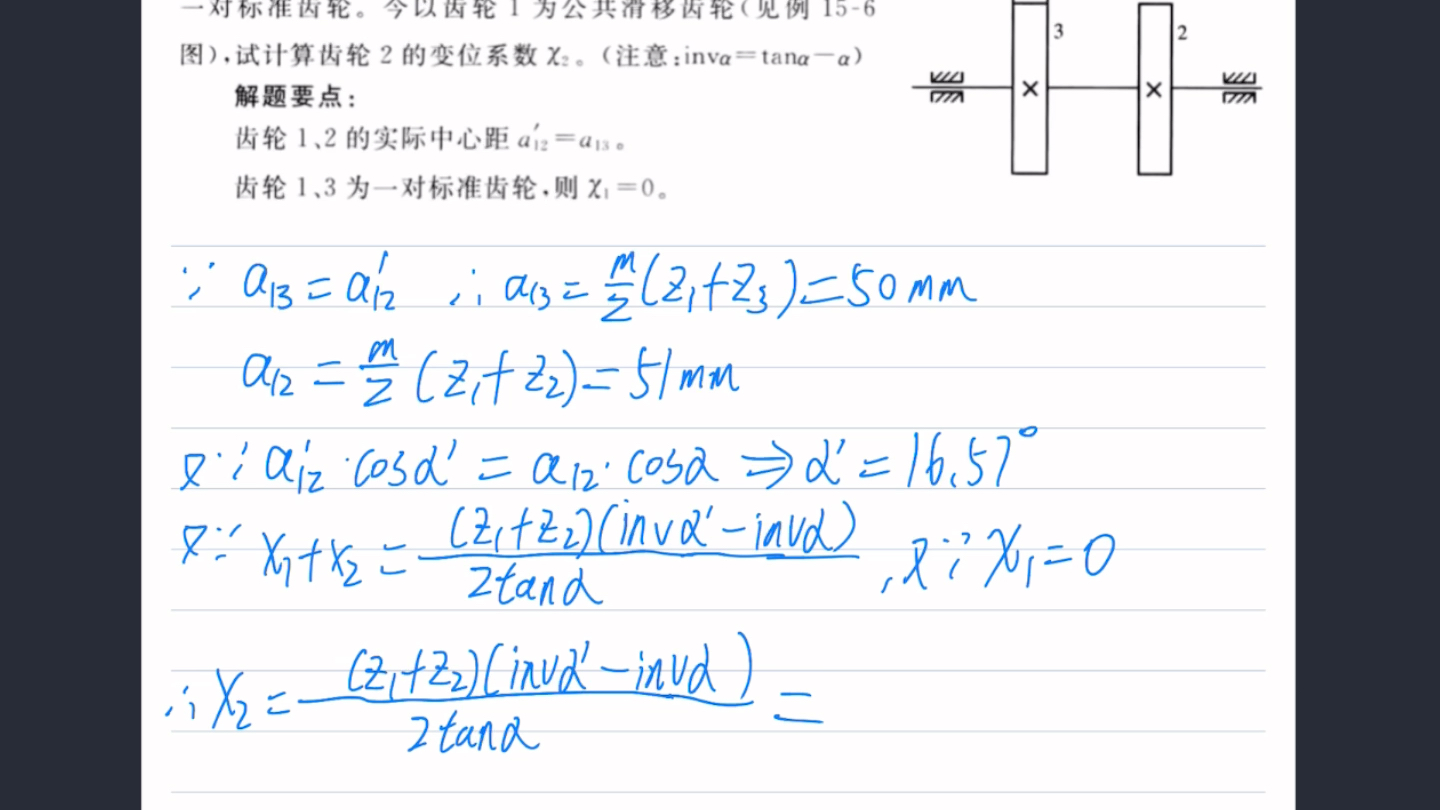 一对标准齿轮。今以齿轮 1 为公共滑移齿轮(见例 15-6
图),试计算齿轮 2 的变位系数 χ₂。(注意:invα=tanα-α)
解题要点:
齿轮 1、2 的实际中心距 a′₁₂=a₁₃。
齿轮 1、3 为一对标准齿轮,则 χ₁=0。
3
2
∵ a₁₃=a′₁₂ ∴ a₁₃=m/2(z₁+z₃)=50mm
a₁₂=m/2(z₁+z₂)=51mm
又∵ a′₁₂·cosα′=a₁₂·cosα ⇒ α′=16.57°
又∵ x₁+x₂=(z₁+z₂)(invα′-invα)/2tanα ,又∵ x₁=0
∴ x₂=(z₁+z₂)(invα′-invα)/2tanα =